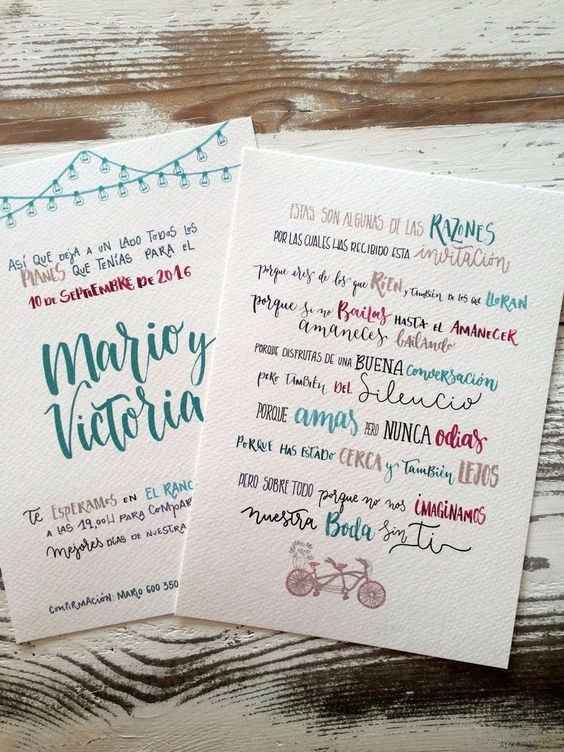 ASÍ QUE DEJA A UN LADO TODOS LOS
PLANES QUE TENÍAS PARA EL
10 DE SEPTIEMBRE DE 2016
Mario y
Victoria
TE ESPERAMOS EN EL RANC
A LAS 19,00H PARA COMPAR
mejores DÍAS DE NUESTRA
CONFIRMACIÓN: MARIO 600 350
ESTAS SON ALGUNAS DE LAS RAZONES
POR LAS CUALES HAS RECIBIDO ESTA invitación
porque eres de los que RÍEN, y también de los que LLORAN
porque si no Bailas HASTA EL AMANECER
amaneces bailando
PORQUE DISFRUTAS DE UNA BUENA conversación
pero también DEL Silencio
PORQUE amas PERO NUNCA odias
PORQUE HAS ESTADO CERCA y también LEJOS
PERO SOBRE TODO porque no nos imaginamos
nuestra Boda sin Ti